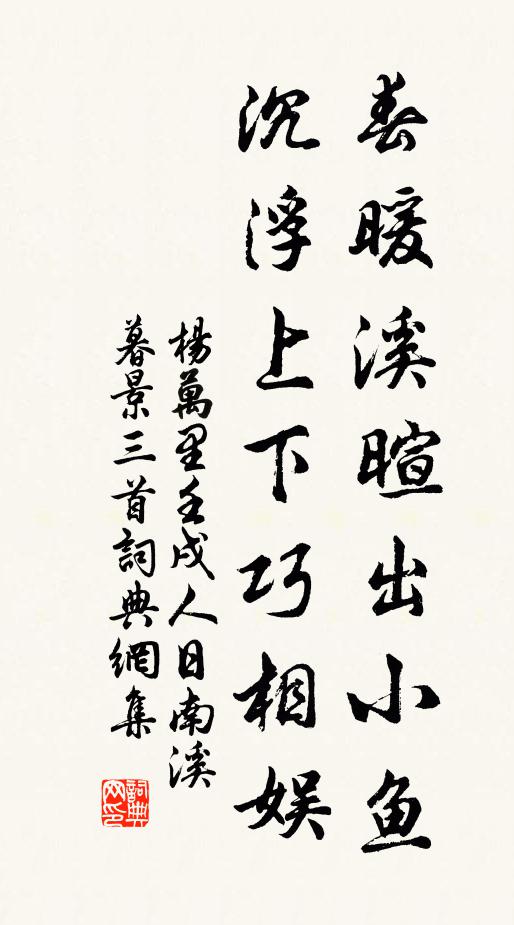 春暖溪暄出小鱼
沉浮上下巧相娱
楊萬里壬戌人日南溪
暮景三首詞典網集
詞典
网印